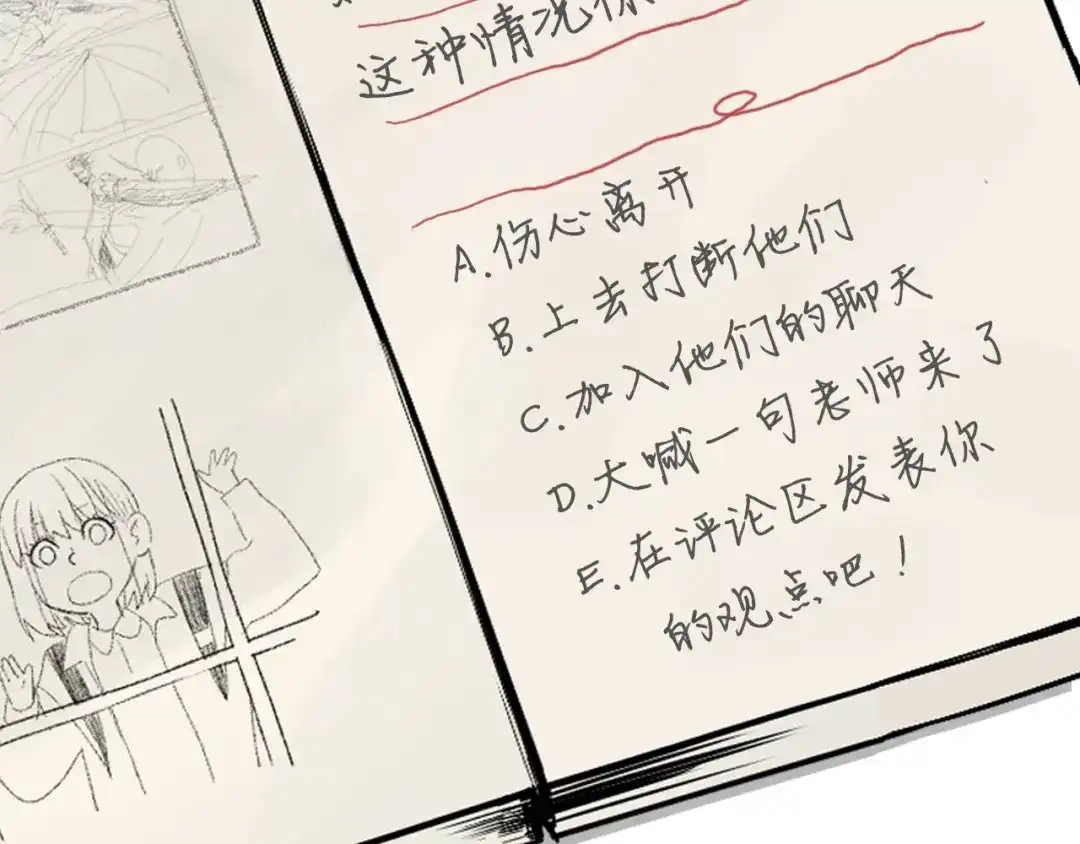 这种情况你
A.伤心离开
B.上去打断他们
C.加入他们的聊天
D.大喊一句老师来了
E.在评论区发表你
的观点吧！